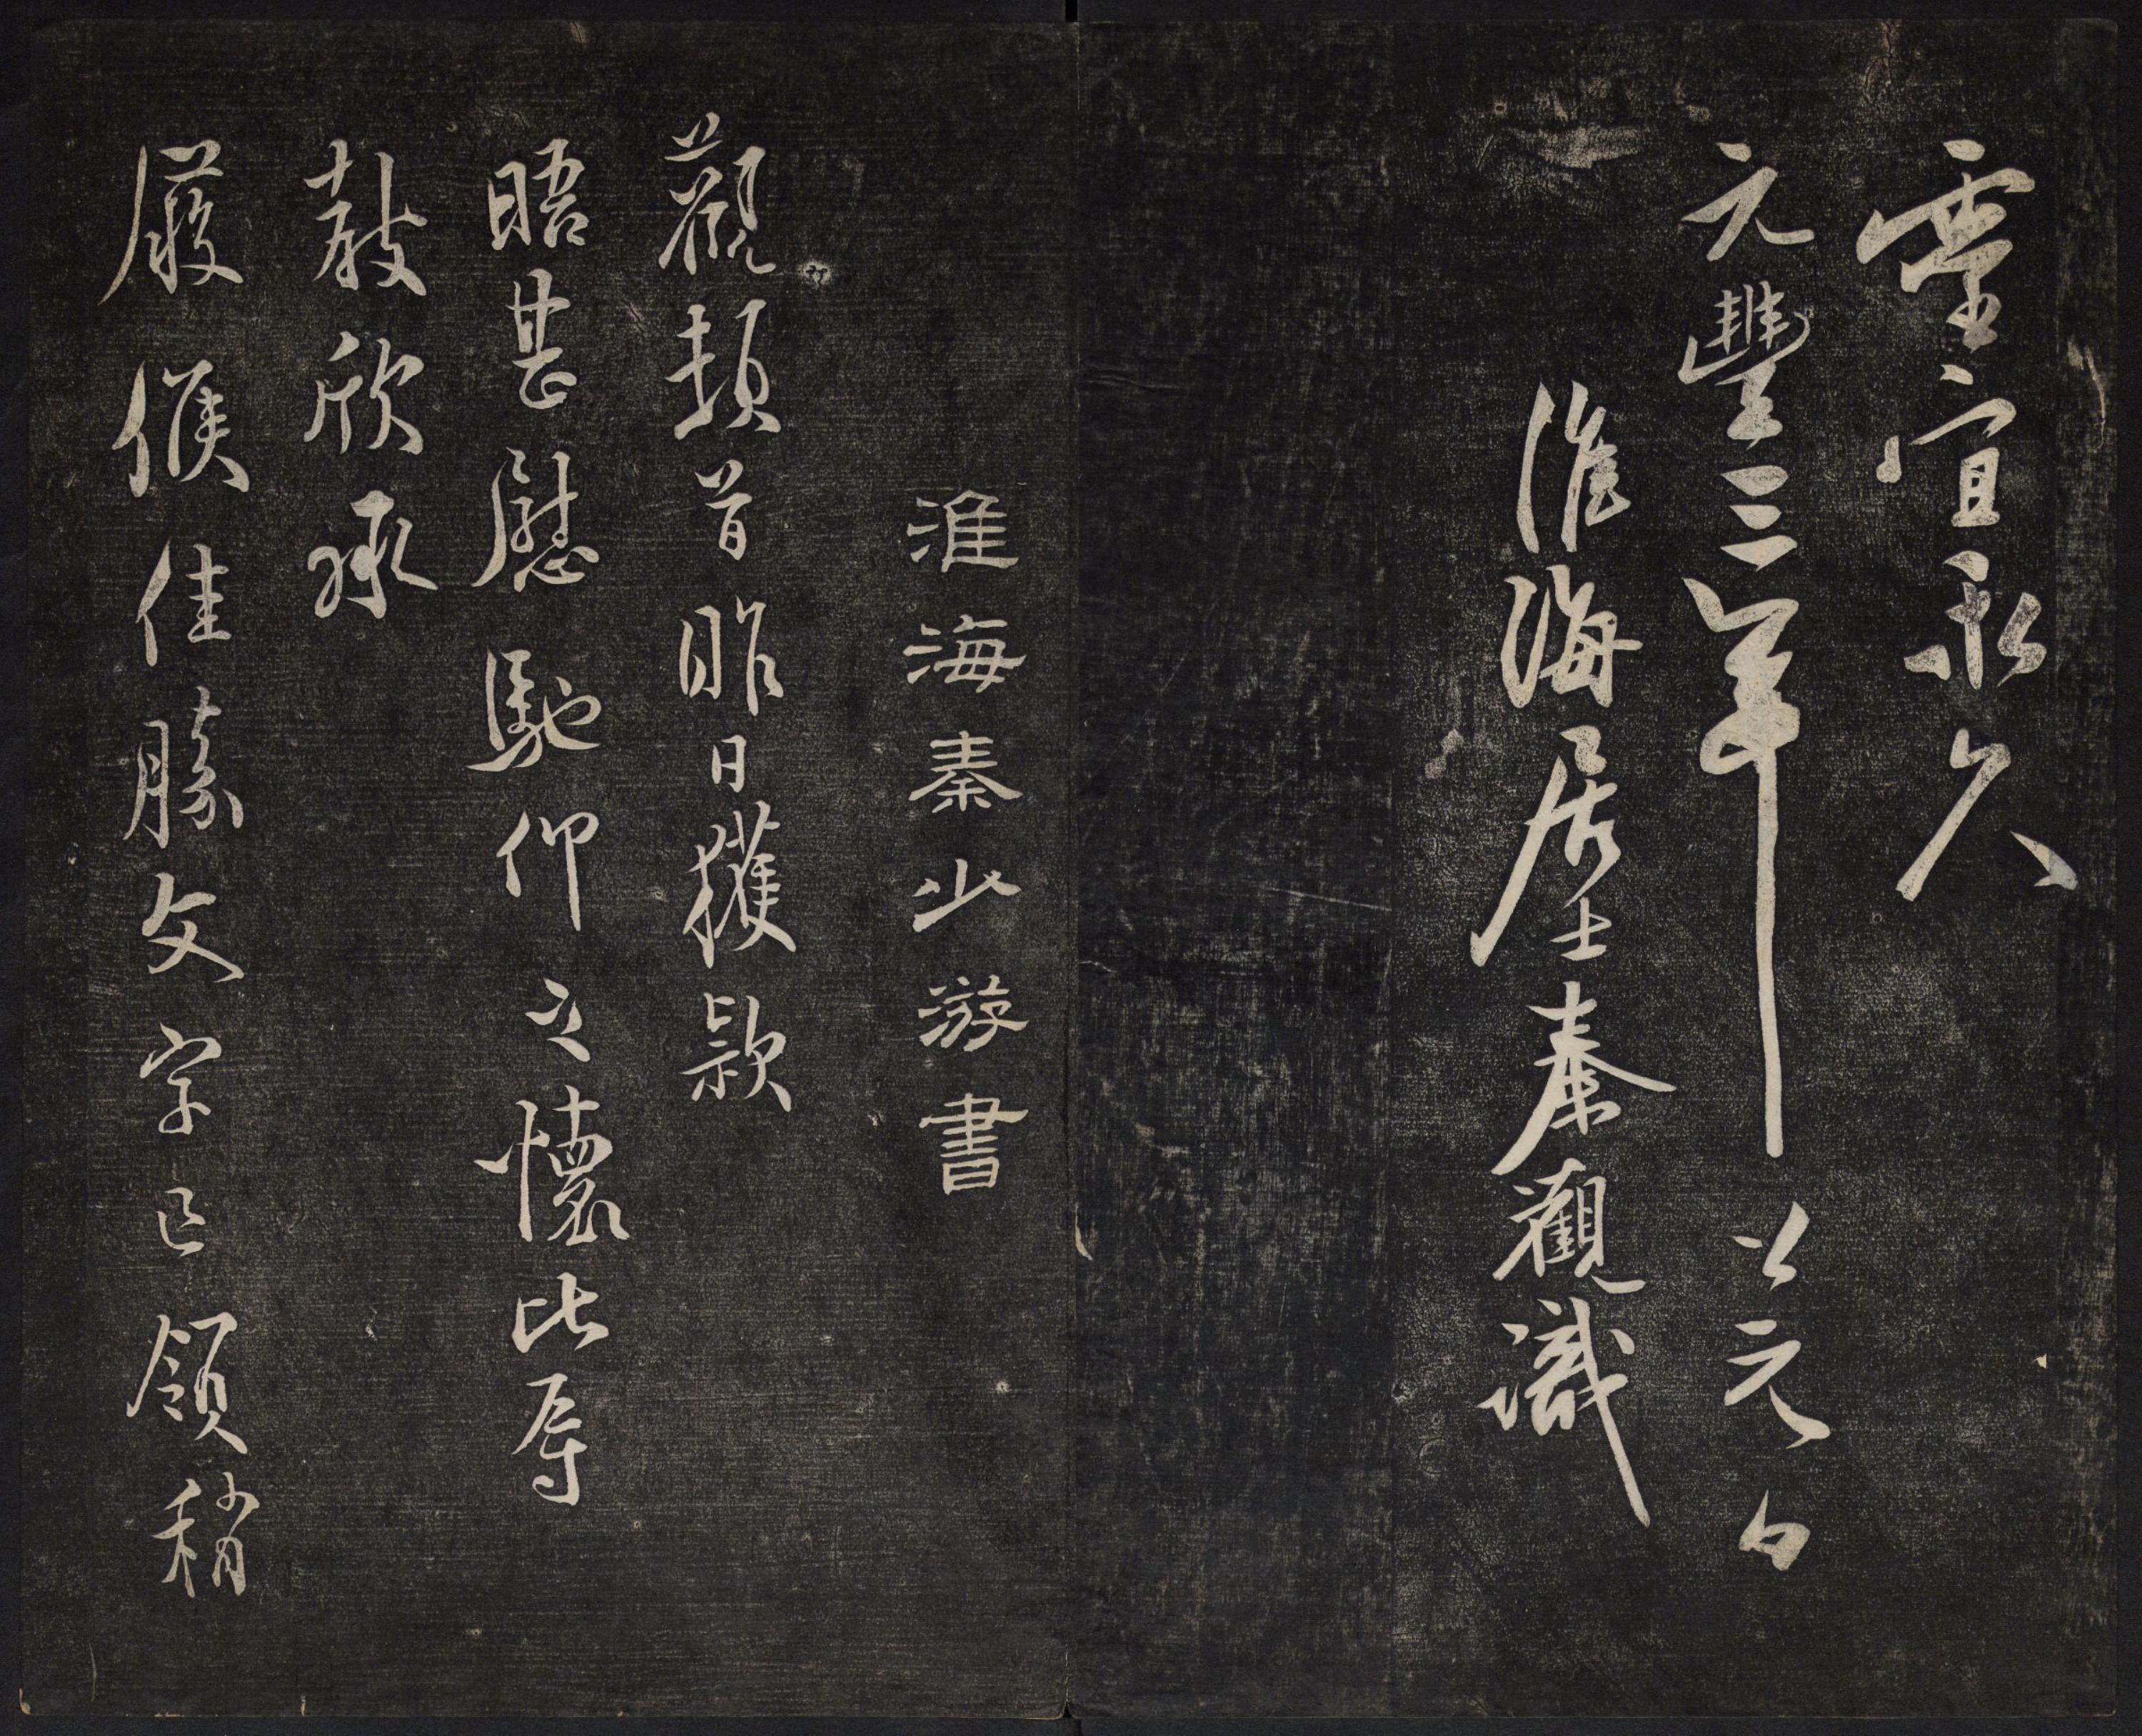 靈宜永久
元豐三年元日
淮海居士秦觀識
淮海秦少游書
觀頓首昨日獲款
晤甚慰馳仰之懷比辱
教欣承
履候佳勝文字已領稍